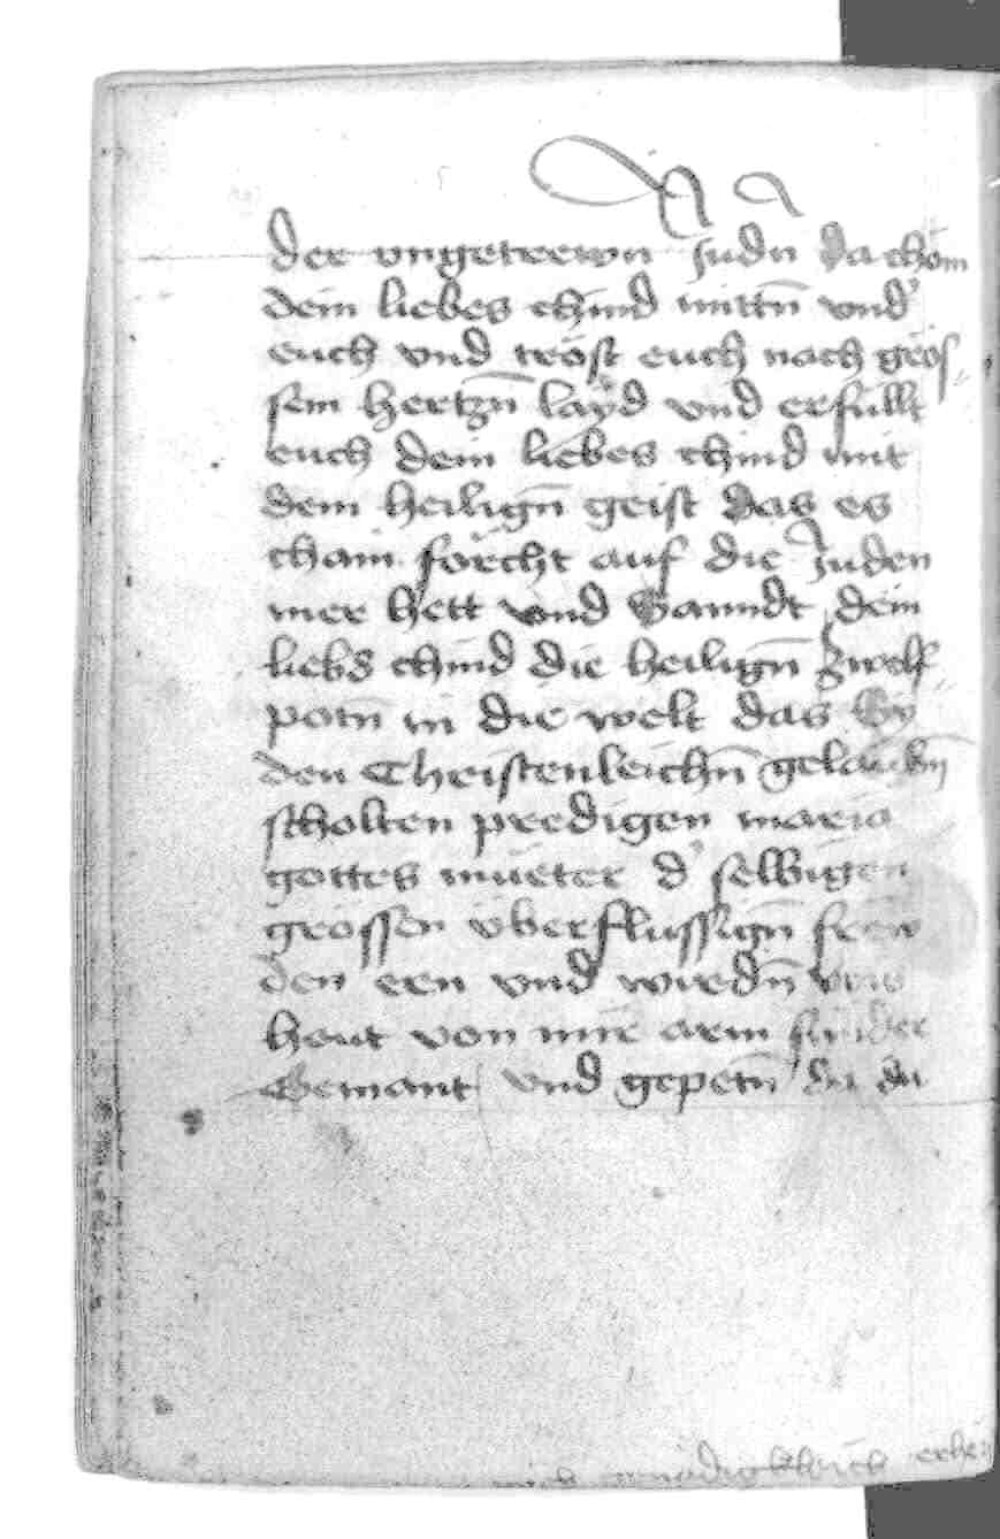 der vngetrewn Judn da chom
dein liebes chind mittn̄ vnd'
euch vnd tröst euch nach grös
sem hertzn̄ layd vnd erfüllt
euch dein liebes chind mit
dem heilign̄ geist das es
chain förcht auf die Juden
mer hett vnd Sanndt dein
liebs chind die heilign̄ zwelf
potn̄ in die welt das Sy
den Christenleichn̄ gelaubn̄
scholten predigen maria
gottes mueter d' selbigen
grossen überflussign̄ frew
den ern vnd wirdn̄ bis
heut von mir arm sunder
Gemant vnd gepetn̄ du du